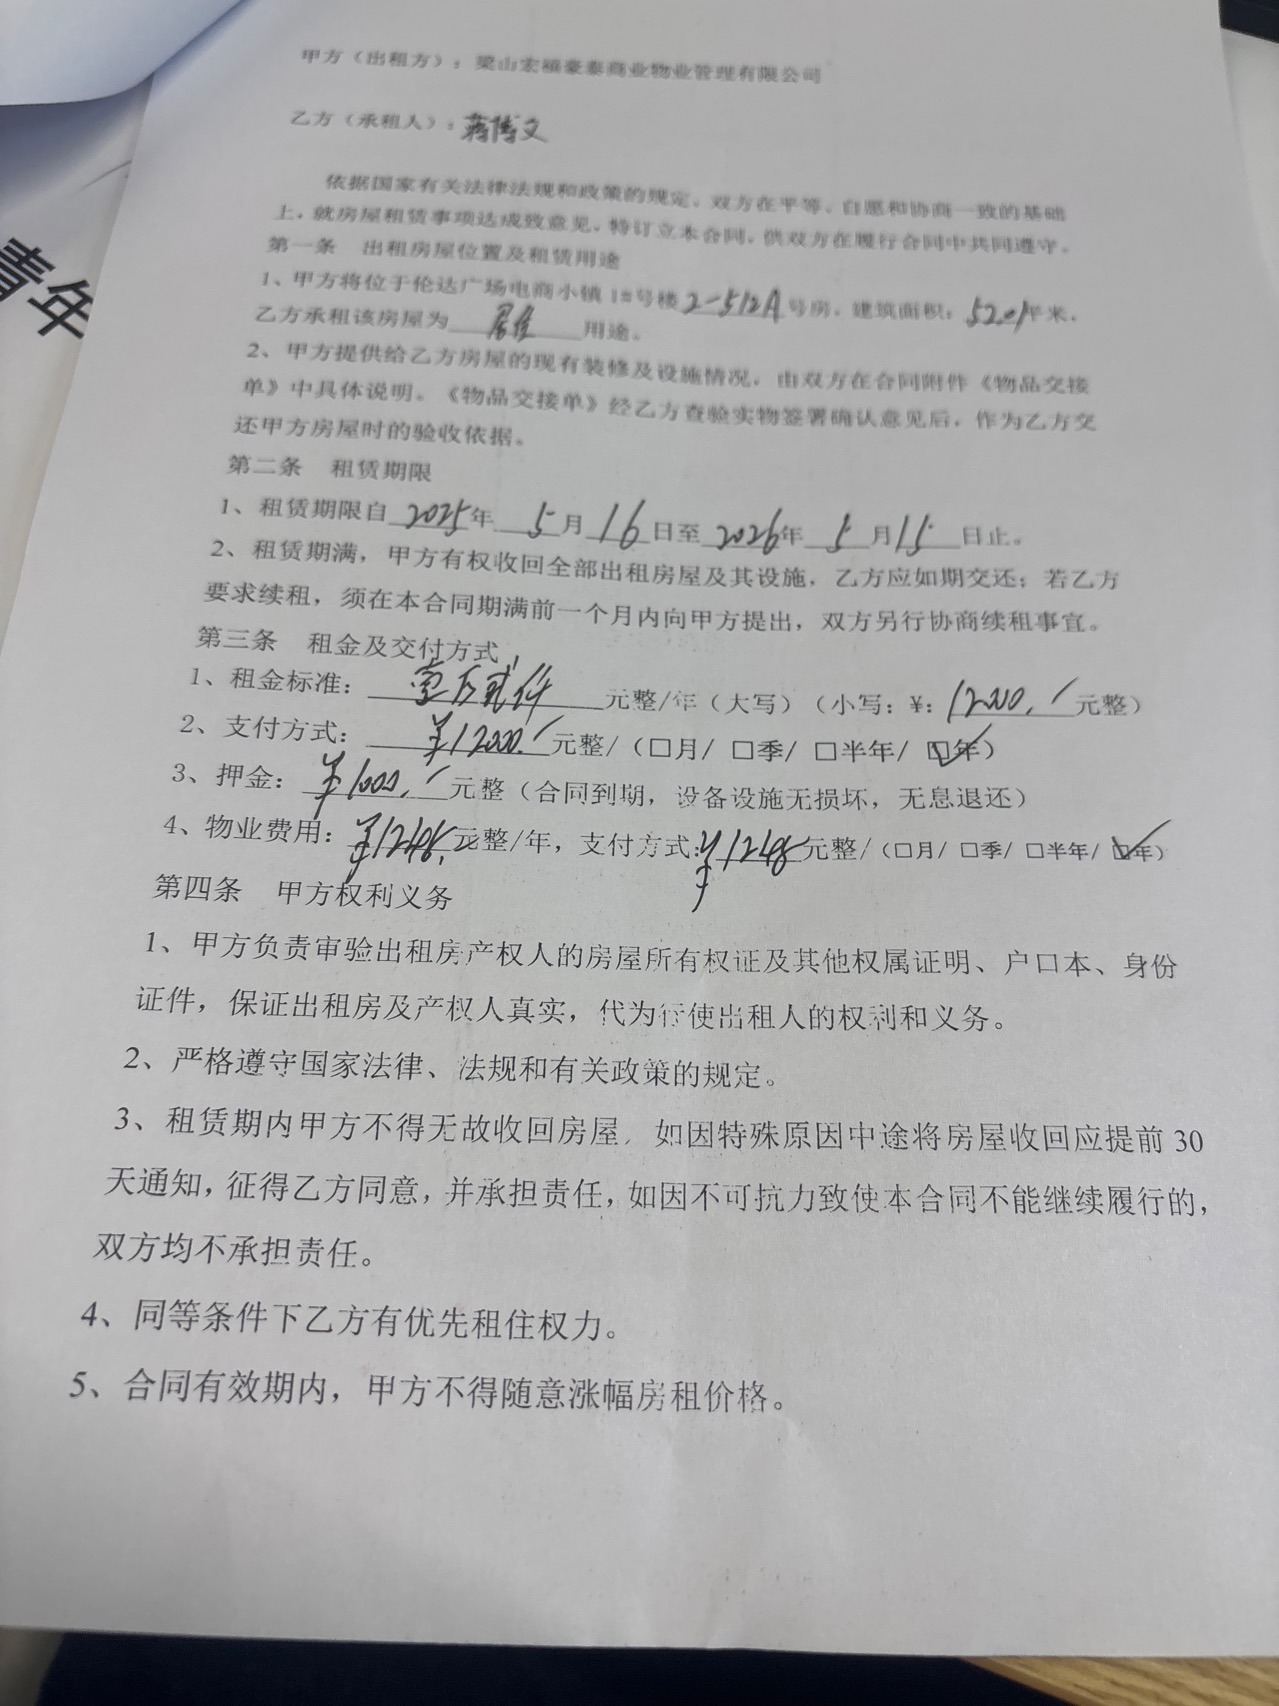 甲方（出租方）：梁山宏福豪泰商业物业管理有限公司
乙方（承租人）：蒋博文
依据国家有关法律法规和政策的规定，双方在平等、自愿和协商一致的基础
上，就房屋租赁事项达成致意见，特订立本合同，供双方在履行合同中共同遵守。
第一条 出租房屋位置及租赁用途
1、甲方将位于伦达广场电商小镇 1#号楼 2-512A 号房，建筑面积：52.01平米，
乙方承租该房屋为 居住 用途。
2、甲方提供给乙方房屋的现有装修及设施情况，由双方在合同附件《物品交接
单》中具体说明。《物品交接单》经乙方查验实物签署确认意见后，作为乙方交
还甲方房屋时的验收依据。
第二条 租赁期限
1、租赁期限自 2025年 5月 16日至 2026年 5月 15日止。
2、租赁期满，甲方有权收回全部出租房屋及其设施，乙方应如期交还；若乙方
要求续租，须在本合同期满前一个月内向甲方提出，双方另行协商续租事宜。
第三条 租金及交付方式
1、租金标准：壹万贰仟 元整/年（大写）（小写：¥：12000.- 元整）
2、支付方式：¥12000.- 元整/（□月/ □季/ □半年/ ☑年）
3、押金：¥1000.- 元整（合同到期，设备设施无损坏，无息退还）
4、物业费用：¥1248.元整/年，支付方式：¥1248元整/（□月/ □季/ □半年/ ☑年）
第四条 甲方权利义务
1、甲方负责审验出租房产权人的房屋所有权证及其他权属证明、户口本、身份
证件，保证出租房及产权人真实，代为行使出租人的权利和义务。
2、严格遵守国家法律、法规和有关政策的规定。
3、租赁期内甲方不得无故收回房屋，如因特殊原因中途将房屋收回应提前 30
天通知，征得乙方同意，并承担责任，如因不可抗力致使本合同不能继续履行的，
双方均不承担责任。
4、同等条件下乙方有优先租住权力。
5、合同有效期内，甲方不得随意涨幅房租价格。
青年